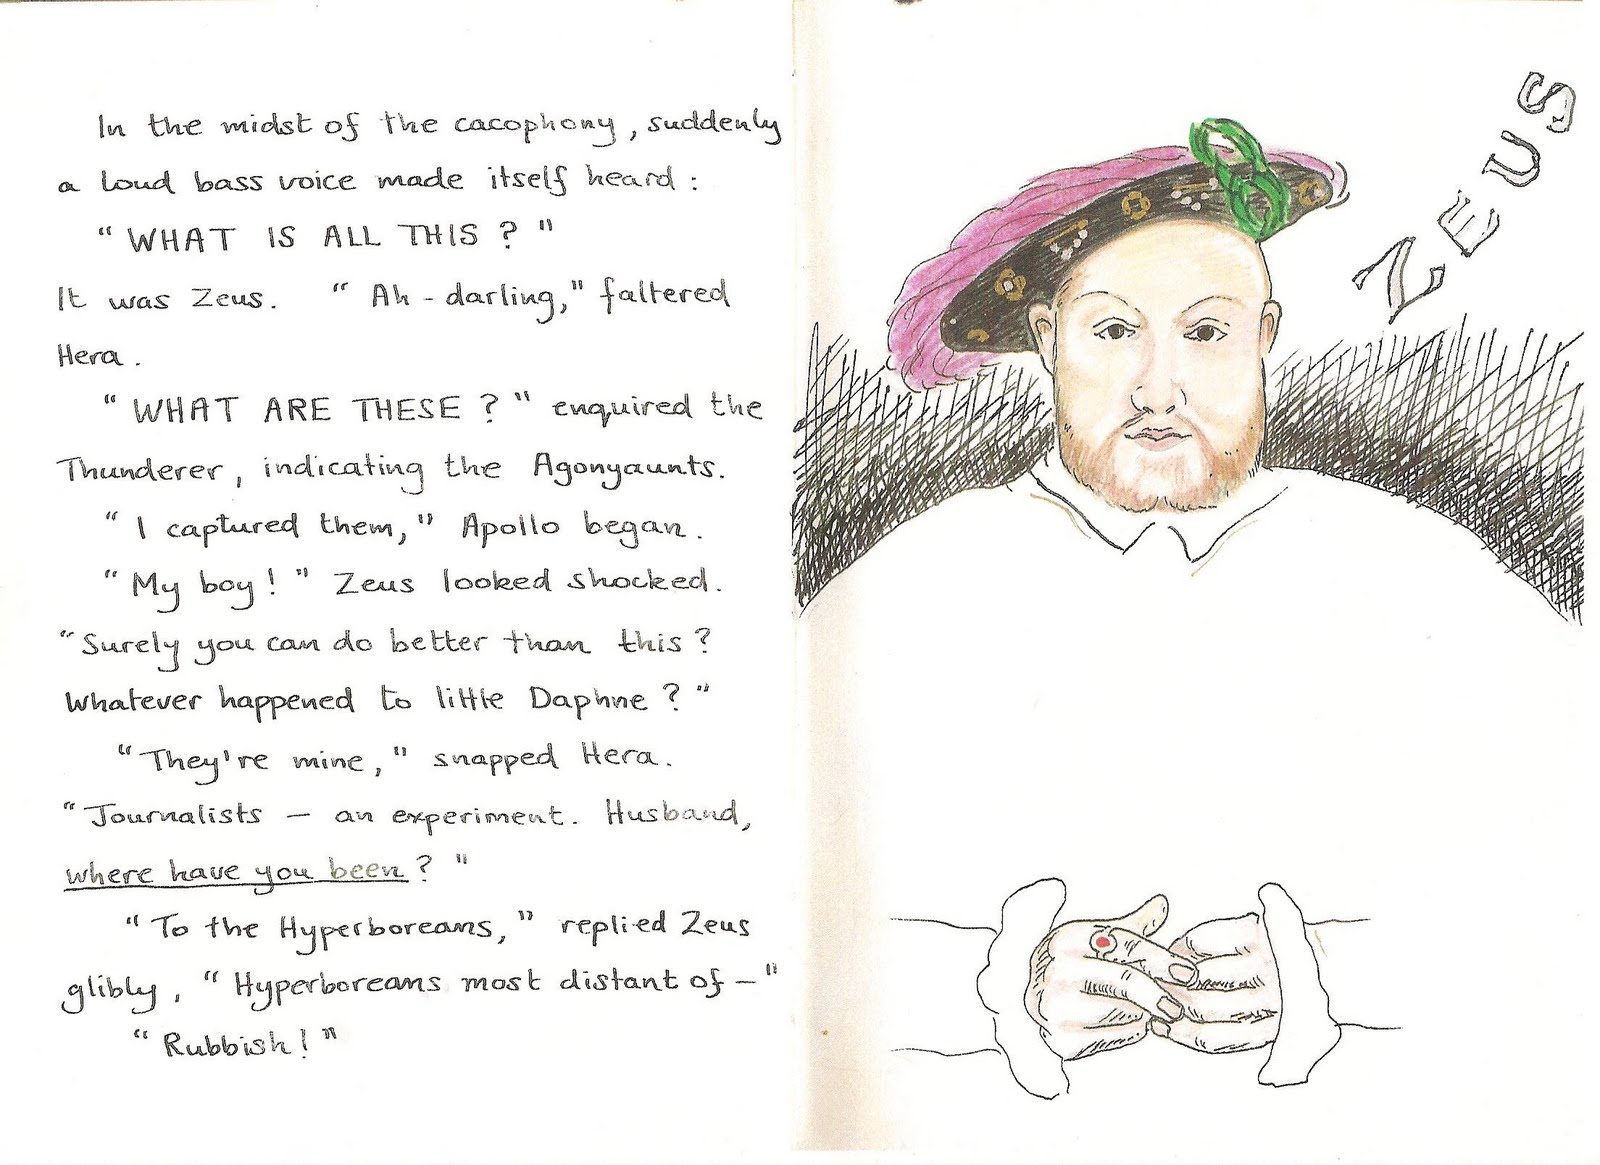 In the midst of the cacophony, suddenly
a loud bass voice made itself heard :
"WHAT IS ALL THIS ? "
It was Zeus. " Ah - darling," faltered
Hera .
"WHAT ARE THESE ? " enquired the
Thunderer, indicating the Agonyaunts.
" I captured them," Apollo began.
"My boy! " Zeus looked shocked.
"Surely you can do better than this ?
Whatever happened to little Daphne ? "
"They're mine," snapped Hera.
"Journalists — an experiment. Husband,
where have you been ? "
"To the Hyperboreans," replied Zeus
glibly, " Hyperboreans most distant of — "
" Rubbish! "
ZEUS